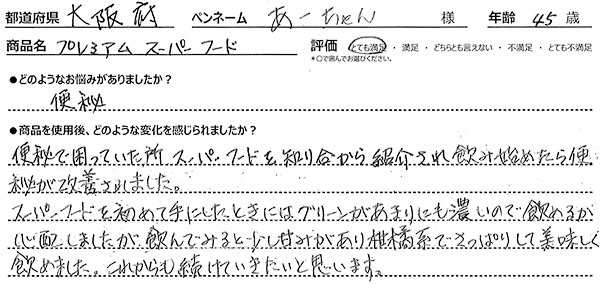 都道府県 大阪府 ペンネーム あーちゃん 様 年齢 45 歳
商品名 プレミアム スーパーフード 評価 とても満足 ・ 満足 ・ どちらとも言えない ・ 不満足 ・ とても不満足
*○で囲んでお選びください。
●どのようなお悩みがありましたか?
便秘
●商品を使用後、どのような変化を感じられましたか?
便秘で困っていた所 スーパーフードを知り合から紹介され飲み始めたら便
秘が改善されました。
スーパーフードを初めて手にしたときにはグリーンがあまりにも濃いので飲めるか
心配しましたが、飲んでみると少し甘みがあり柑橘系でさっぱりして美味しく
飲めました。これからも続けていきたいと思います。